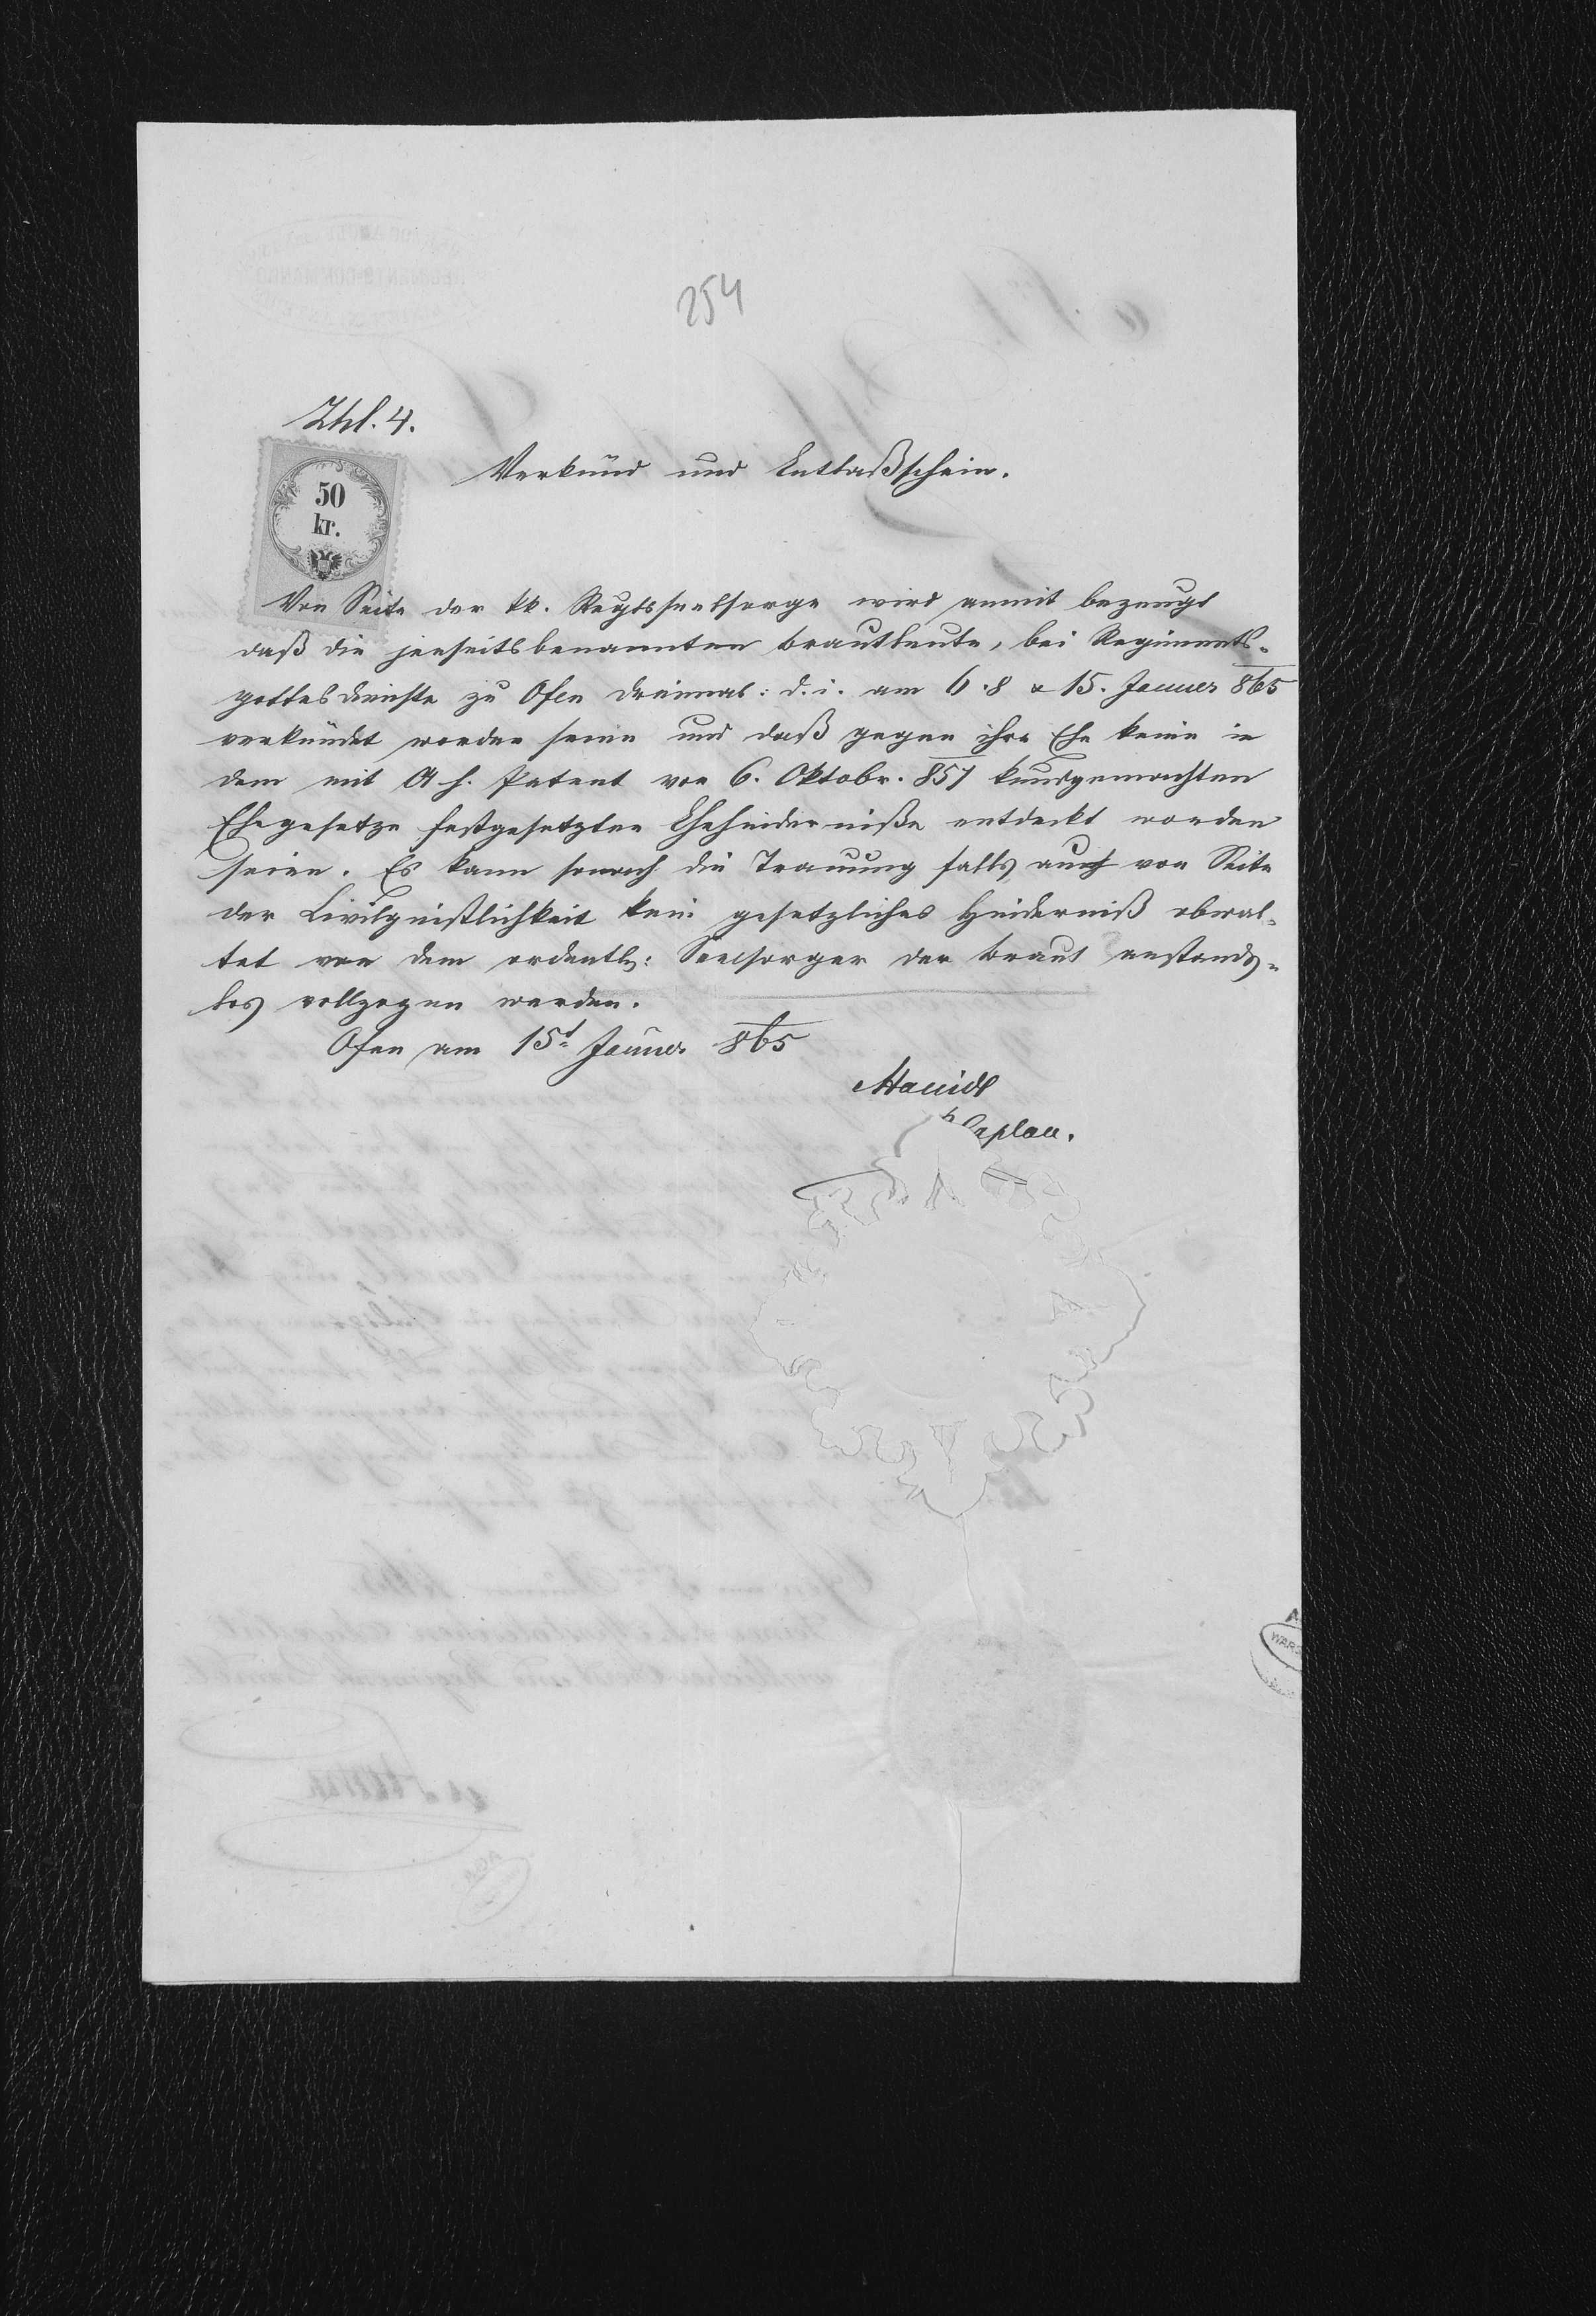 254
Zhl. 4.
50
kr.
Verkünd und Entlaßschein.
Von Seite der kk. Regtsseelsorge wird anmit bezeugt
daß die jenseitsbenannten Brautleute, bei Regiments-
gottesdienste zu Ofen dreimal: d. i. am 6. 8 & 15. Jänner 865
verkündet worden seien und daß gegen ihre Ehe keine in
dem mit A h. Patent von 6. Oktobr. 857 kundgemachten
Ehegesetze festgesetzten Ehehinderniße entdeckt worden
seien. Es kann sonach die Trauung falls auch von Seite
der Civilgeistlichkeit kein gesetzliches Hinderniß obwal-
tet von dem ordentl: Seelsorger der Braut anstands-
los vollzogen werden.
Ofen am 15t Jänner 865
Caplan.